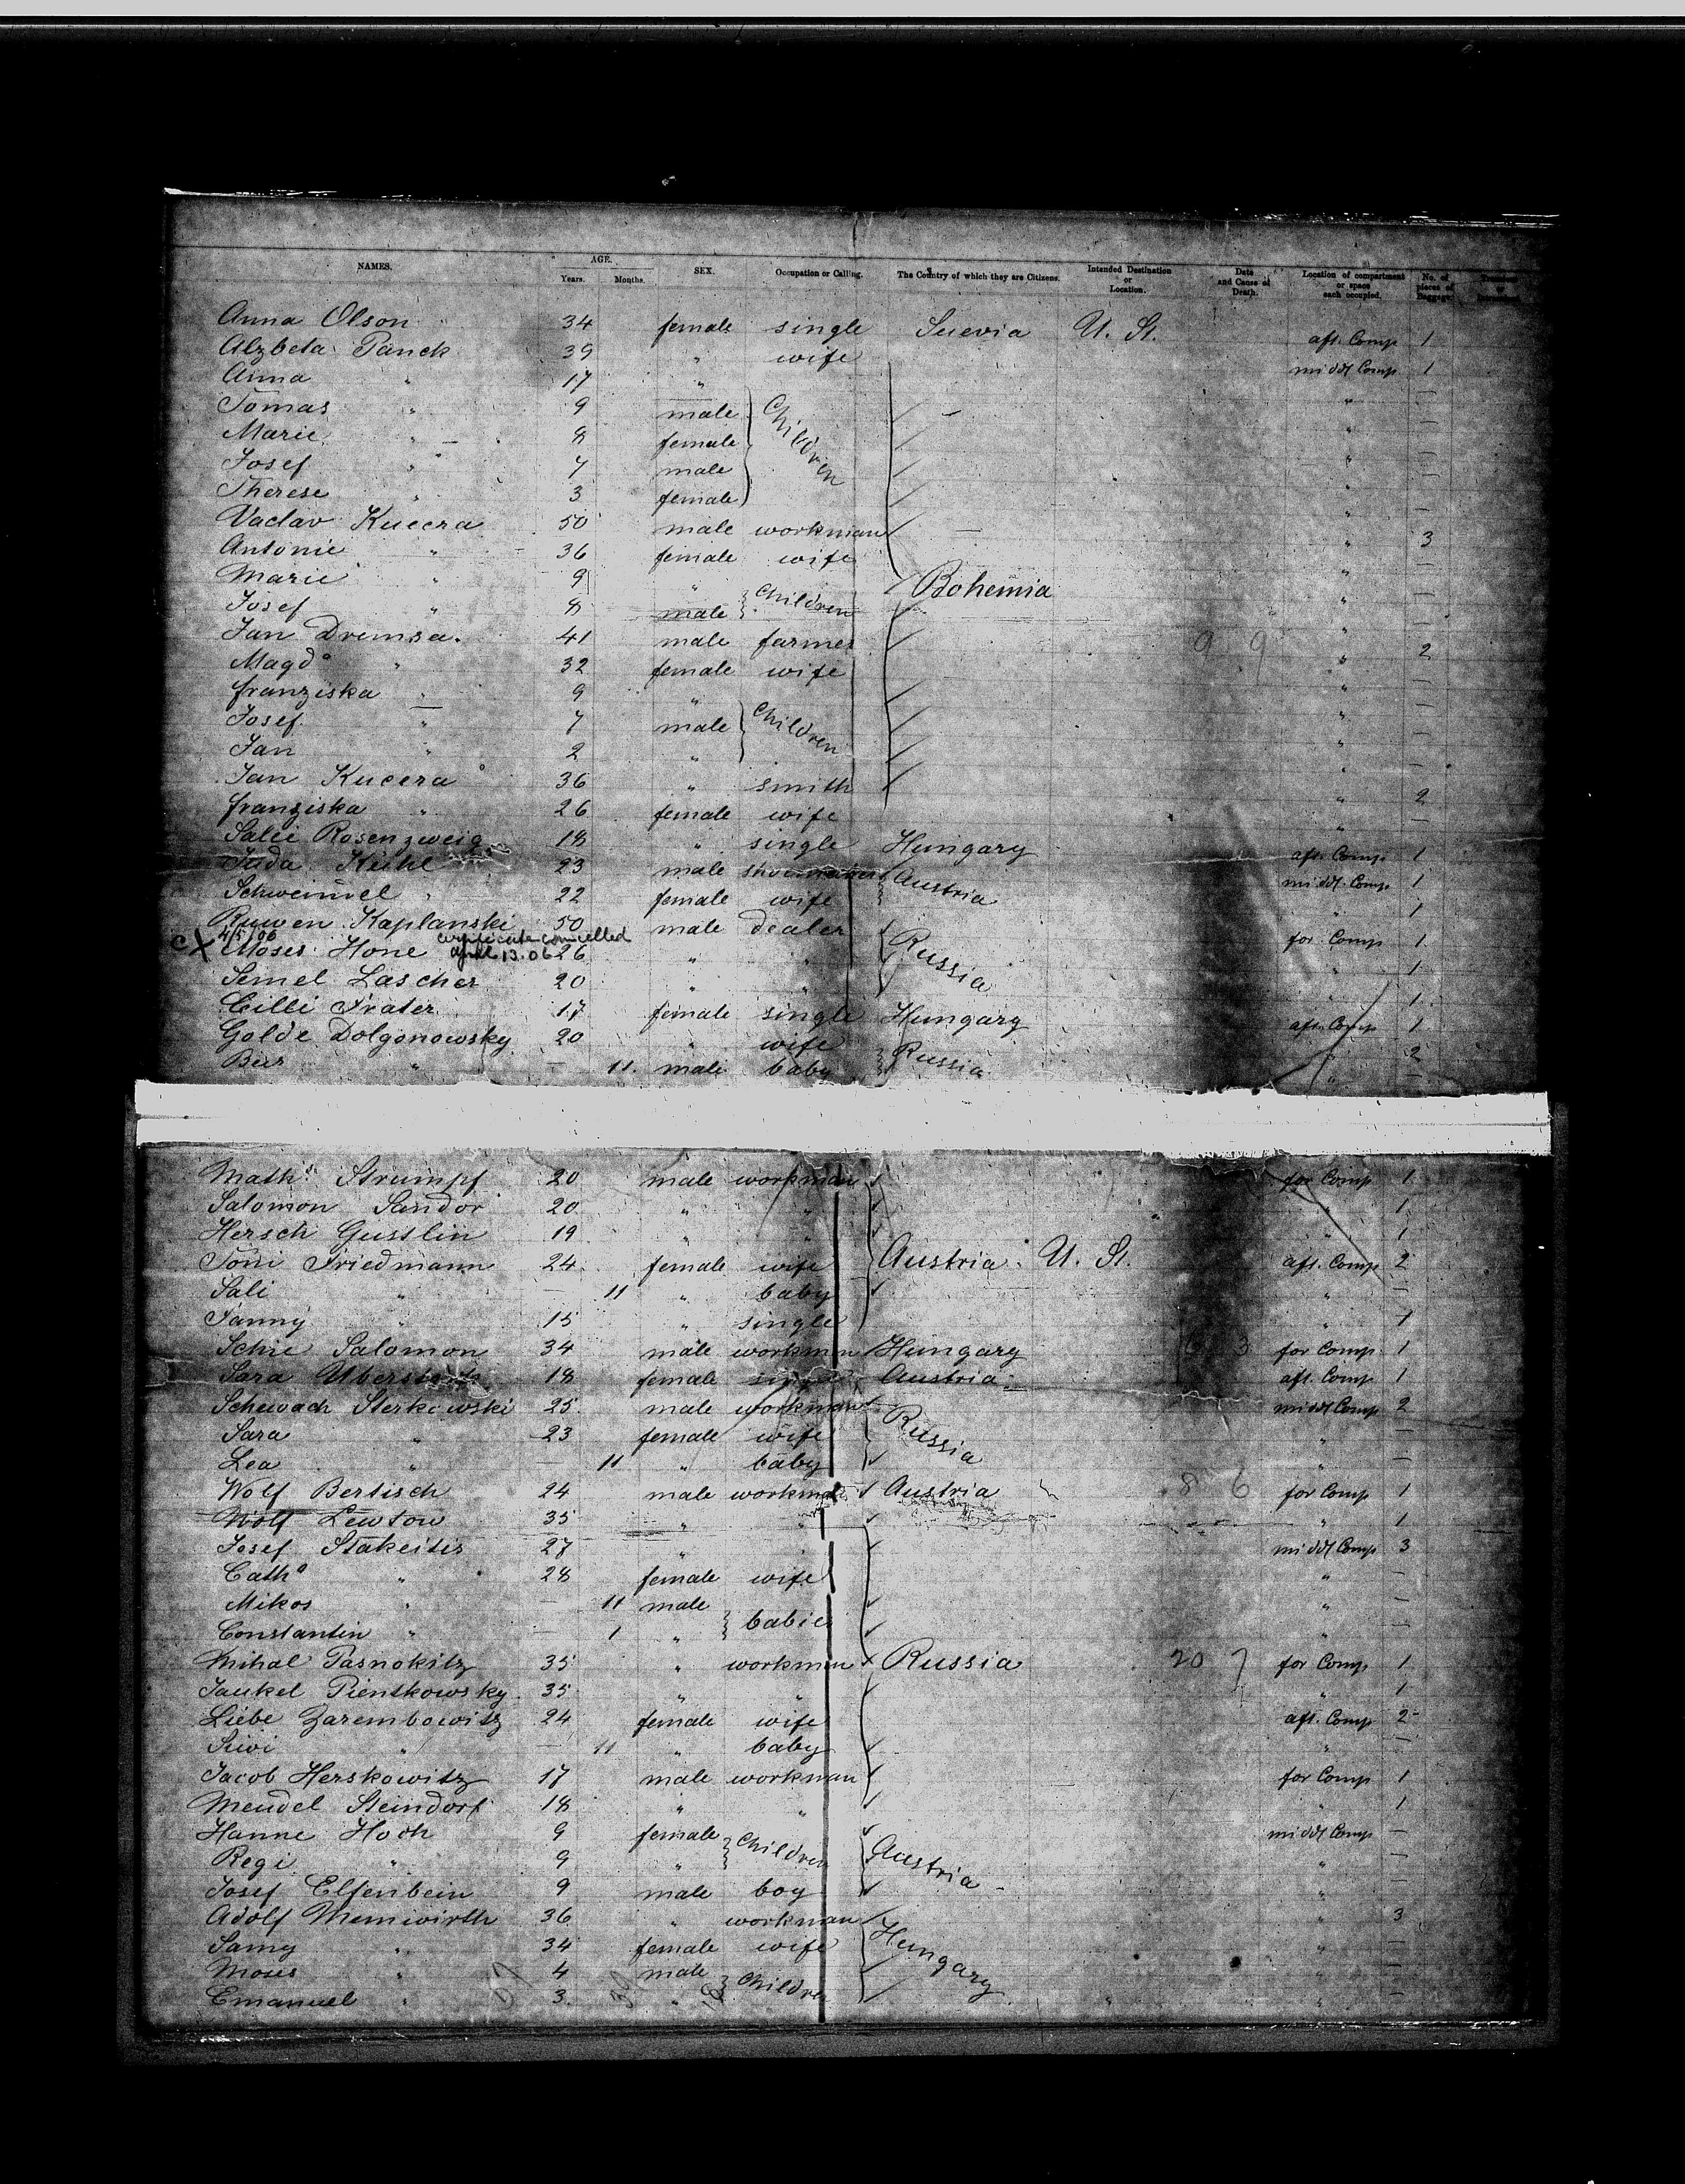 NAMES. AGE. Years. Months. SEX. Occupation or Calling. The Country of which they are Citizens. Intended Destination or Location. Date and Cause of Death. Location of compartment or space each occupied. No. of pieces of Baggage.
Anna Olson 34 female single Suevia U. St. aft. Comp 1
Alzbeta Panek 39 " wife middl Comp 1
Anna " 17 " " —
Tomas " 9 male Children " —
Marie " 8 female " —
Josef " 7 male " —
Therese " 3 female " —
Vaclav Kucera 50 male workman " 3
Antonie " 36 female wife " —
Marie " 9 " Children Bohemia " —
Josef " 8 male " —
Jan Dremsa. 41 male farmer 9 9 " 2
Magda " 32 female wife " —
franziska " 9 " Children " —
Josef " 7 male " —
Jan " 2 " " —
Jan Kucera 36 " smith " 2
franziska " 26 female wife " —
Salie Rosenzweig 18 " single Hungary aft. Comp 1
Juda Kehl 23 male shoemaker Austria middl. Comp 1
Schweindel " 22 female wife " 1
Ruwen Kaplanski 50 male dealer Russia for Comp 1
4/5/06 certificate cancelled
cx Moses Hone april 13.06 26 " " " 1
Semel Lascher 20 " " " 1
Cilli Frater 17 female single Hungary aft. Comp 1
Golde Dolgonowsky 20 " wife Russia " 2
Beer " — 11 male baby " —
Maths Strumpf 20 male workman for Comp 1
Salomon Sandor 20 " " " 1
Hersch Gusslin 19 " " " 1
Toni Friedmann 24 female wife Austria U. St. aft. Comp 2
Sali " — 11 " baby " —
Fanny " 15 " single " 1
Schie Salomon 34 male workman Hungary 6 3 for Comp 1
Sara 18 female single Austria aft. Comp 1
Schewach Sterkowski 25 male workman Russia middl Comp 2
Sara " 23 female wife " —
Lea " — 11 " baby " —
Wolf Bertisch 24 male workman Austria 8 6 for Comp 1
Wolf Lewtow 35 " " " 1
Josef Stakeitis 27 " " middl Comp 3
Catha " 28 female wife " —
Mikos " — 11 male babies " —
Constantin " — 1 " " —
Mihal Pasnokitz 35 " workman Russia 20 7 for Comp 1
Jankel Pientkowsky 35 " " " 1
Liebe Zarembowitz 24 female wife aft. Comp 2
Siwi " — 11 " baby " —
Jacob Herskowitz 17 male workman for Comp 1
Mendel Steindorf 18 " " " 1
Hanne Hoch 9 female Children Austria middl Comp —
Regi " 9 " " —
Josef Elfenbein 9 male boy " —
Adolf Memwirth 36 " workman Hungary " 3
Samy " 34 female wife " —
Moses " 4 male Children " —
Emanuel " 3 " " —